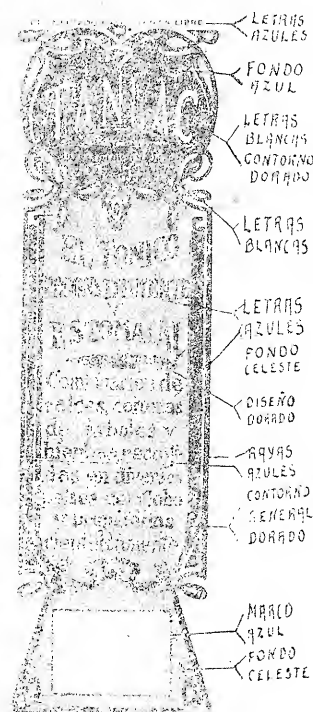 LIBRE
TANLAC
EL TONICO
Y
ESTOMACAL
Combinacion de
raices, cortezas
de Arboles y
hierbas recogi-
das en diversos
paises del Globo
y preparadas
cientificamente
LETRAS
AZULES
FONDO
AZUL
LETRAS
BLANCAS
CONTORNO
DORADO
LETRAS
BLANCAS
LETRAS
AZULES
FONDO
CELESTE
DISEÑO
DORADO
RAYAS
AZULES
CONTORNO
GENERAL
DORADO
MARCO
AZUL
FONDO
CELESTE